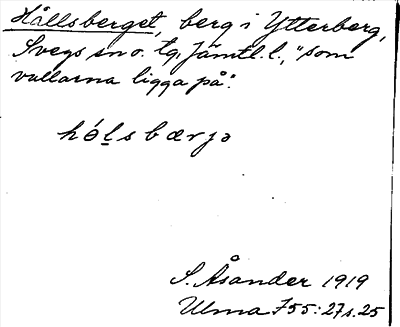 Hållsberget, berg i Ytterberg,
Svegs sn o. tg. Jämtl. l., "som
vallarna ligga på".
hɵ́lsbærjə
S. Åsander 1919
Ulma 755:27 s. 25